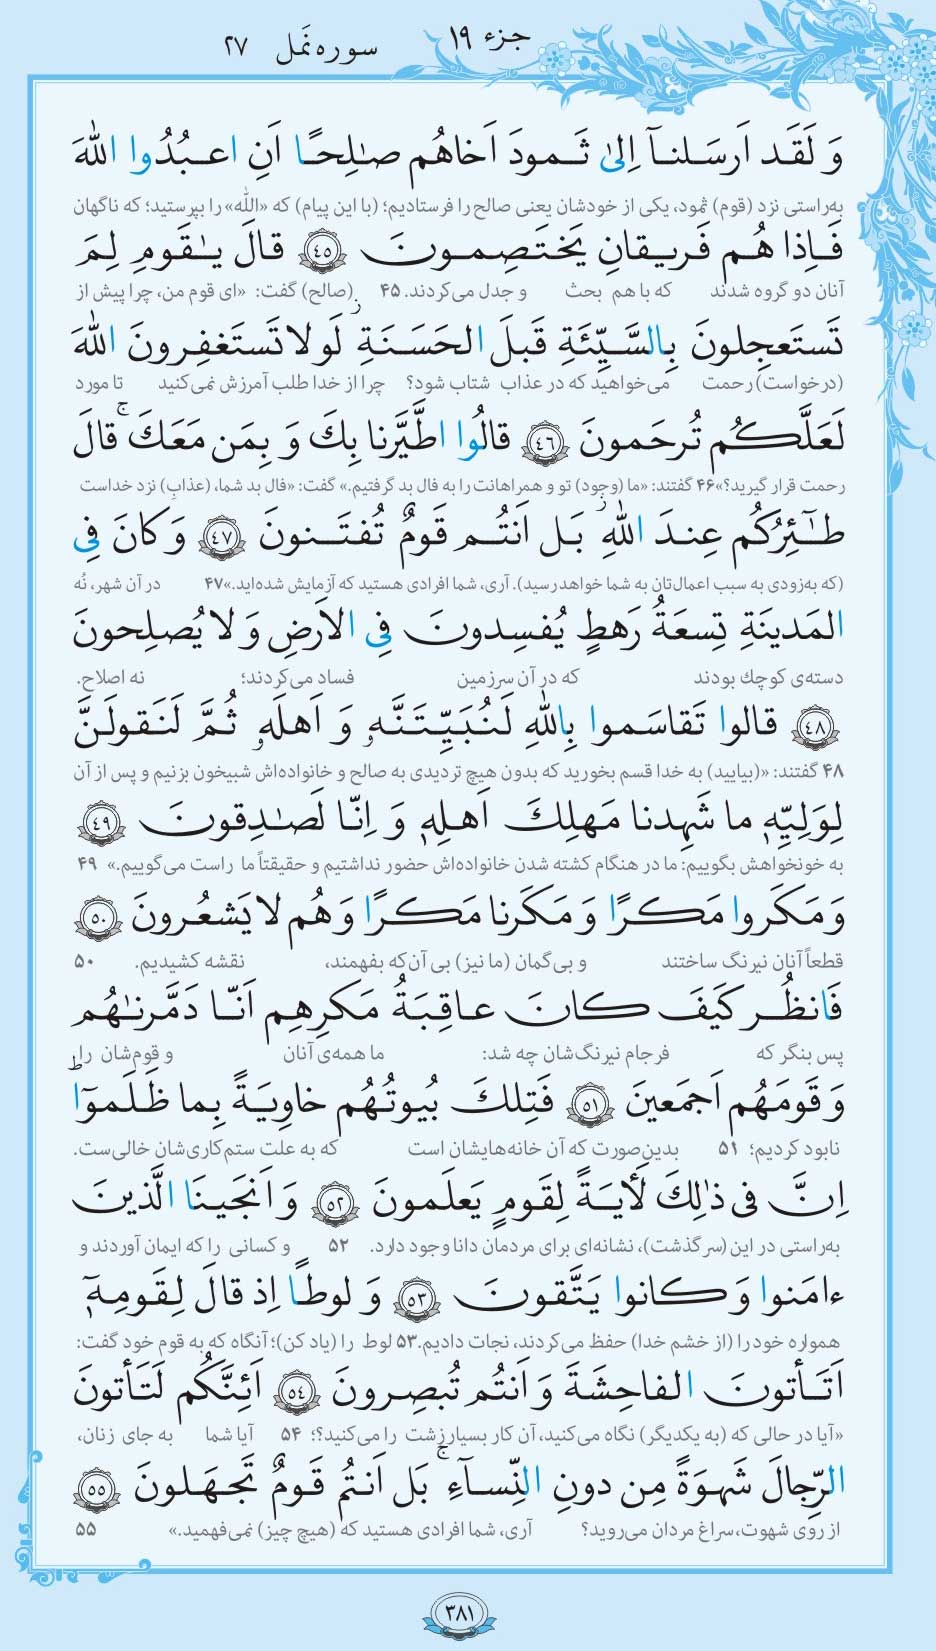 جزء ۱۹ سوره نَمل ۲۷
وَ لَقَد اَرسَلنآ اِلىٰ ثَمودَ اَخاهُم صٰلِحًا اَنِ اعبُدُوا اللهَ
به‌راستی نزد (قوم) ثمود، یکی از خودشان یعنی صالح را فرستادیم؛ (با این پیام) که «الله» را بپرستید؛ که ناگهان
فَاِذا هُم فَريقانِ يَختَصِمونَ ﴿٤٥﴾ قالَ يٰقَومِ لِمَ
آنان دو گروه شدند که با هم بحث و جدل می‌کردند. ۴۵ (صالح) گفت: «ای قوم من، چرا پیش از
تَستَعجِلونَ بِالسَّيِّئَةِ قَبلَ الحَسَنَةِ ۖ لَولا تَستَغفِرونَ اللهَ
(درخواست) رحمت می‌خواهید که در عذاب شتاب شود؟ چرا از خدا طلب آمرزش نمی‌کنید تا مورد
لَعَلَّكُم تُرحَمونَ ﴿٤٦﴾ قالُوا اطَّيَّرنا بِكَ وَ بِمَن مَعَكَ ۚ قالَ
رحمت قرار گیرید؟» ۴۶ گفتند: «ما (وجود) تو و همراهانت را به فال بد گرفتیم.» گفت: «فال بد شما، (عذابِ) نزد خداست
طـٰٓئِرُكُم عِندَ اللهِ ۖ بَل اَنتُم قَومٌ تُفتَنونَ ﴿٤٧﴾ وَ كانَ فِى
(که به‌زودی به سبب اعمال‌تان به شما خواهد رسید). آری، شما افرادی هستید که آزمایش شده‌اید.» ۴۷ در آن شهر، نُه
المَدينَةِ تِسعَةُ رَهطٍ يُفسِدونَ فِى الاَرضِ وَ لا يُصلِحونَ
دسته‌ی کوچک بودند که در آن سرزمین فساد می‌کردند؛ نه اصلاح.
﴿٤٨﴾ قالوا تَقاسَموا بِاللهِ لَنُبَيِّتَنَّهٗ وَ اَهلَهٗ ثُمَّ لَنَقولَنَّ
۴۸ گفتند: «(بیایید) به خدا قسم بخورید که بدون هیچ تردیدی به صالح و خانواده‌اش شبیخون بزنیم و پس از آن
لِوَلِيِّهٖ ما شَهِدنا مَهلِكَ اَهلِهٖ وَ اِنّا لَصٰدِقونَ ﴿٤٩﴾
به خونخواهش بگوییم: ما در هنگام کشته شدن خانواده‌اش حضور نداشتیم و حقیقتاً ما راست می‌گوییم.» ۴۹
وَ مَكَروا مَكرًا وَ مَكَرنا مَكرًا وَ هُم لا يَشعُرونَ ﴿٥٠﴾
قطعاً آنان نیرنگ ساختند و بی‌گمان (ما نیز) بی آن‌که بفهمند، نقشه کشیدیم. ۵۰
فَانظُر كَيفَ كانَ عاقِبَةُ مَكرِهِم اَنّا دَمَّرنٰهُم
پس بنگر که فرجام نیرنگ‌شان چه شد: ما همه‌ی آنان و قوم‌شان را
وَ قَومَهُم اَجمَعينَ ﴿٥١﴾ فَتِلكَ بُيوتُهُم خاوِيَةً بِما ظَلَموٓا ۗ
نابود کردیم؛ ۵۱ بدین‌صورت که آن خانه‌هایشان است که به علت ستم‌کاری‌شان خالی‌ست.
اِنَّ فى ذٰلِكَ لَأيَةً لِقَومٍ يَعلَمونَ ﴿٥٢﴾ وَ اَنجَينَا الَّذينَ
به‌راستی در این (سرگذشت)، نشانه‌ای برای مردمان دانا وجود دارد. ۵۲ و کسانی را که ایمان آوردند و
ءامَنوا وَ كانوا يَتَّقونَ ﴿٥٣﴾ وَ لوطًا اِذ قالَ لِقَومِهٖٓ
همواره خود را (از خشم خدا) حفظ می‌کردند، نجات دادیم. ۵۳ لوط را (یاد کن)؛ آنگاه که به قوم خود گفت:
اَتَأتونَ الفاحِشَةَ وَ اَنتُم تُبصِرونَ ﴿٥٤﴾ اَئِنَّكُم لَتَأتونَ
«آیا در حالی که (به یکدیگر) نگاه می‌کنید، آن کار بسیار زشت را می‌کنید؟؛ ۵۴ آیا شما به جای زنان،
الرِّجالَ شَهوَةً مِن دونِ النِّسآءِ ۚ بَل اَنتُم قَومٌ تَجهَلونَ ﴿٥٥﴾
از روی شهوت، سراغ مردان می‌روید؟ آری، شما افرادی هستید که (هیچ چیز) نمی‌فهمید.» ۵۵
۳۸۱